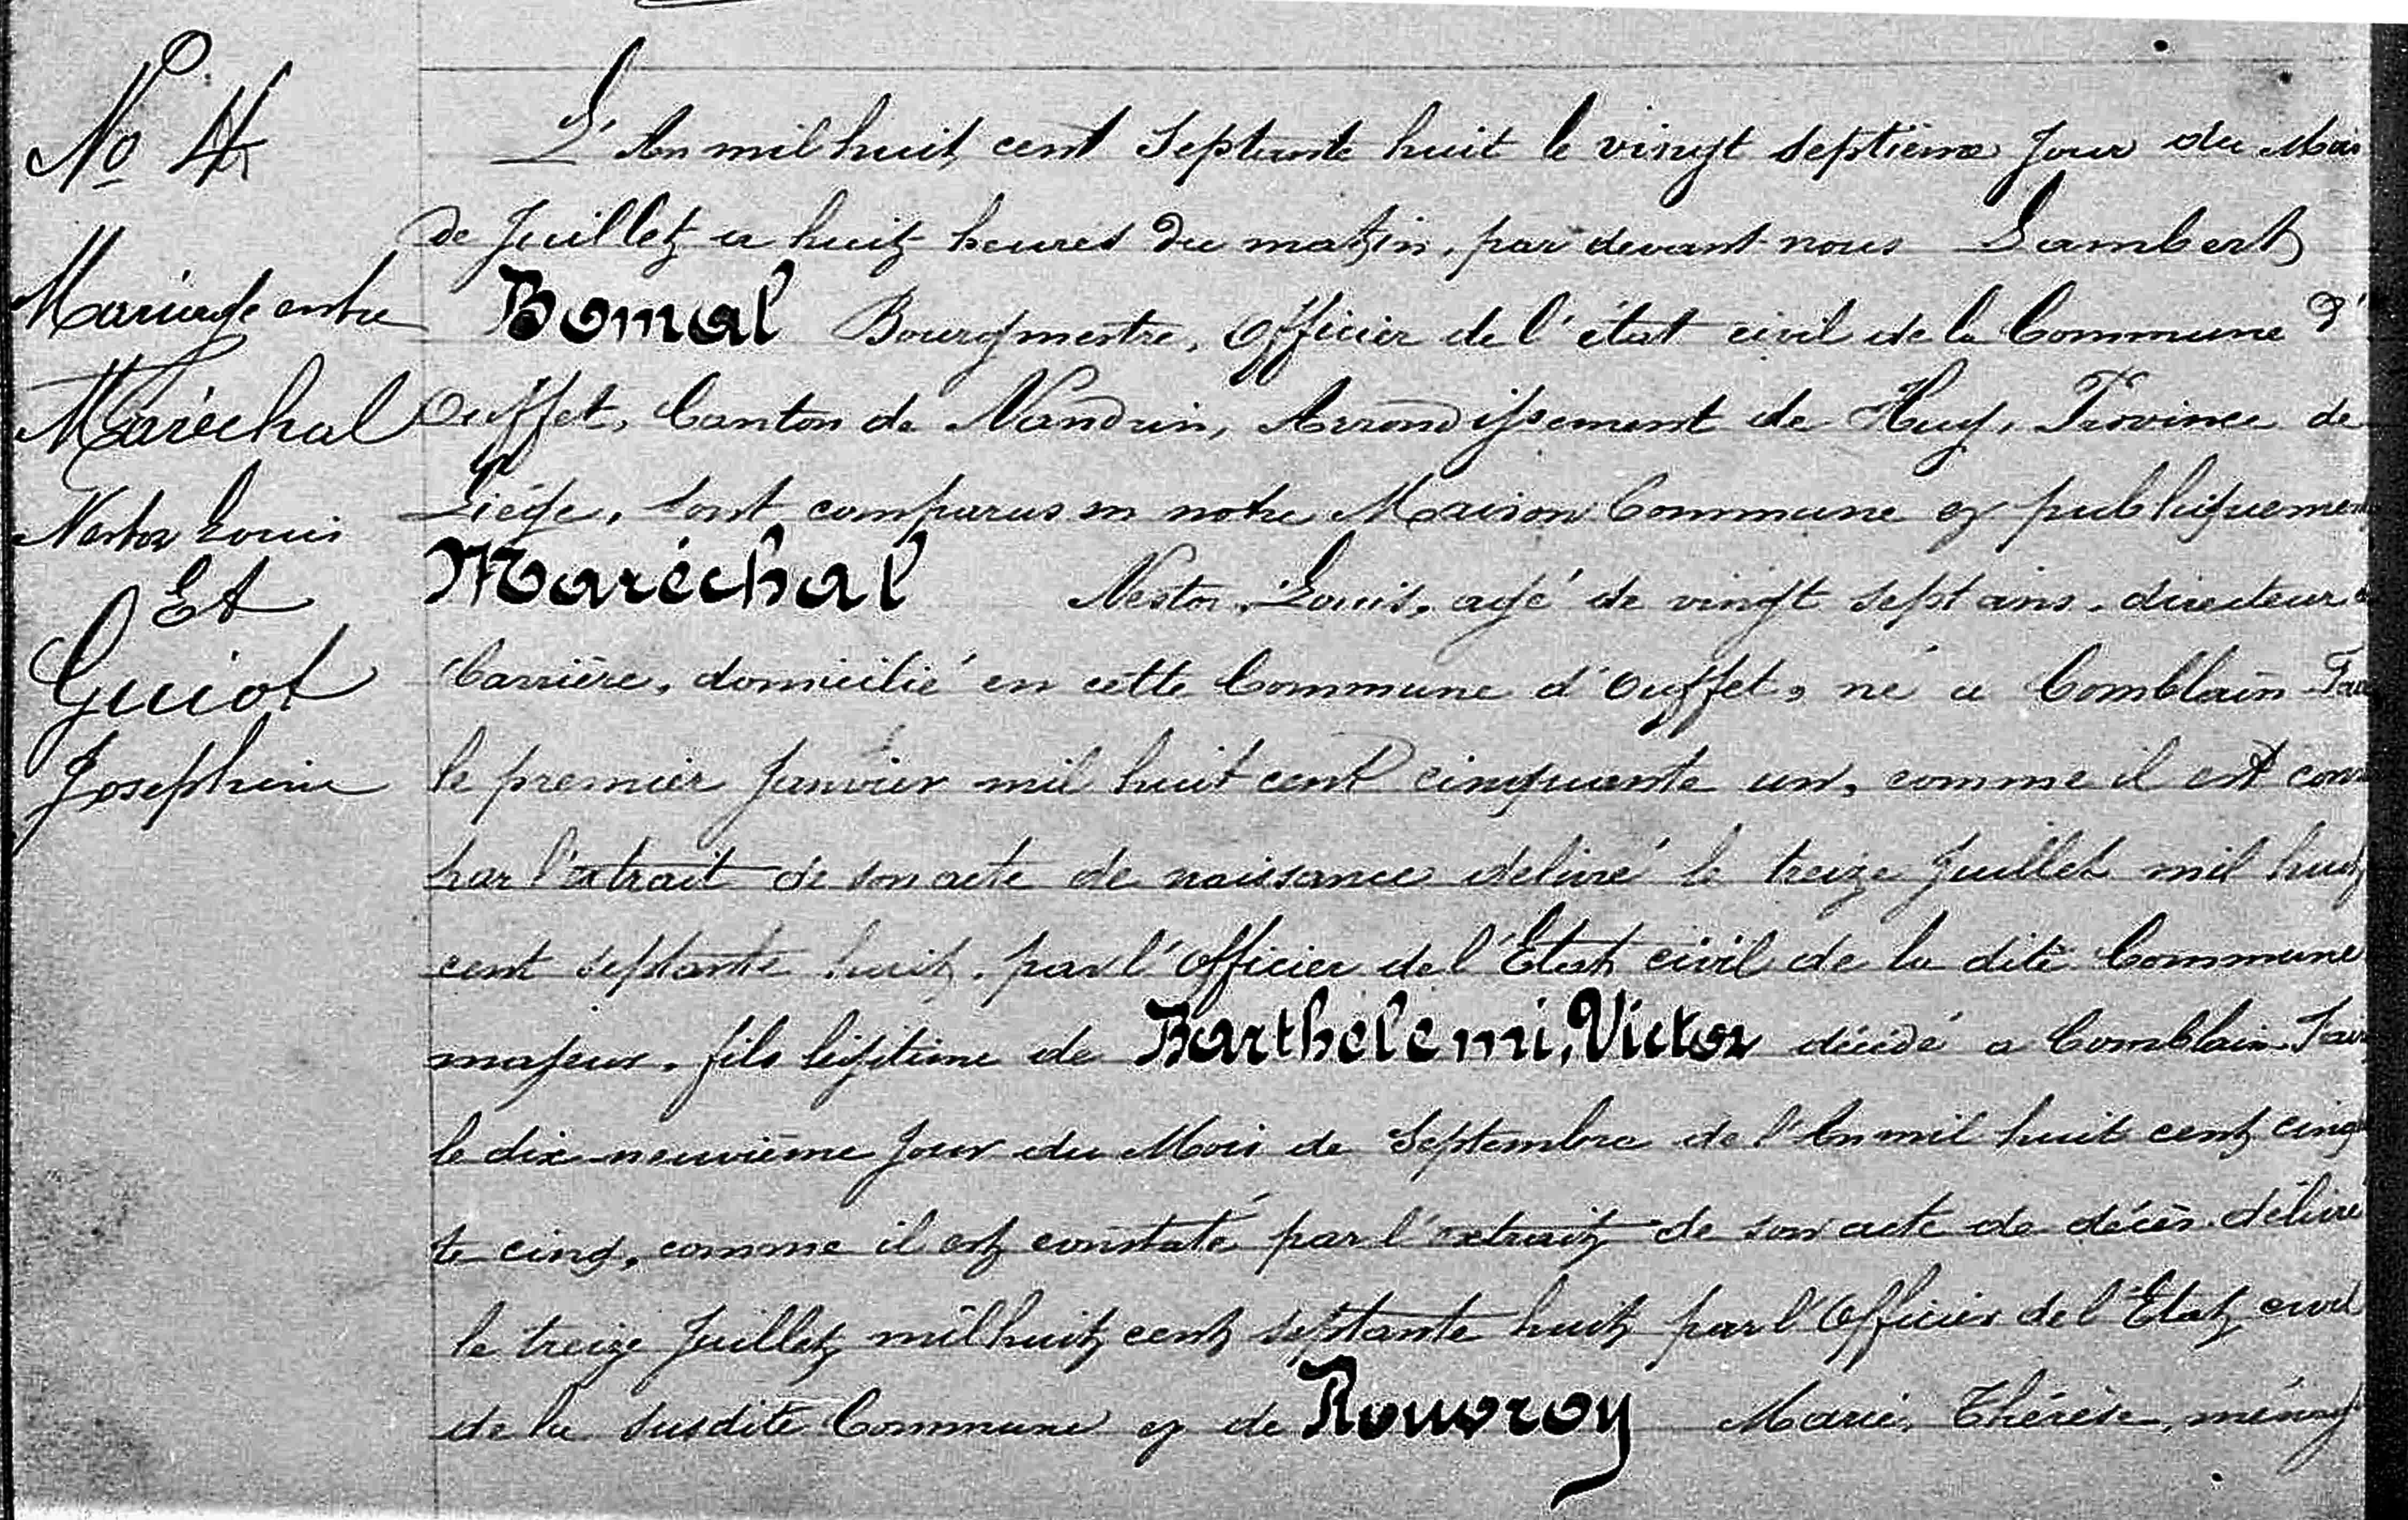 No 4
Mariage entre
Maréchal
Nestor Louis
Et
Guiot
Josephine
L'An mil huit cent septante huit le vingt septième jour du Mois
de Juillet a huit heures du matin, par devant nous Lambert
Bomal Bourgmestre, Officier de l'état civil de la Commune d'
Ouffet, Canton de Nandrin, Arrondissement de Huy, Province de
Liége, sont comparus en notre Maison Commune et publiquement
Maréchal Nestor, Louis, agé de vingt sept ans, directeur
Carrière, domicilié en cette Commune d'Ouffet, né a Comblain
le premier Janvier mil huit cent cinquante un, comme il est
par l'extrait de son acte de naissance delivré le treize Juillet mil huit
cent septante huit, par l'Officier de l'Etat civil de la dite Commune
majeur, fils légitime de Barthélemi, Victor décédé a Comblain
le dix neuvième jour du Mois de Septembre de l'An mil huit cent cinq
te cinq, comme il est constaté par l'extrait de son acte de décès délivré
le treize Juillet mil huit cent septante huit par l'Officier de l'Etat civil
de la susdite Commune et de Rouvroy Marie, Thérèse, ménag